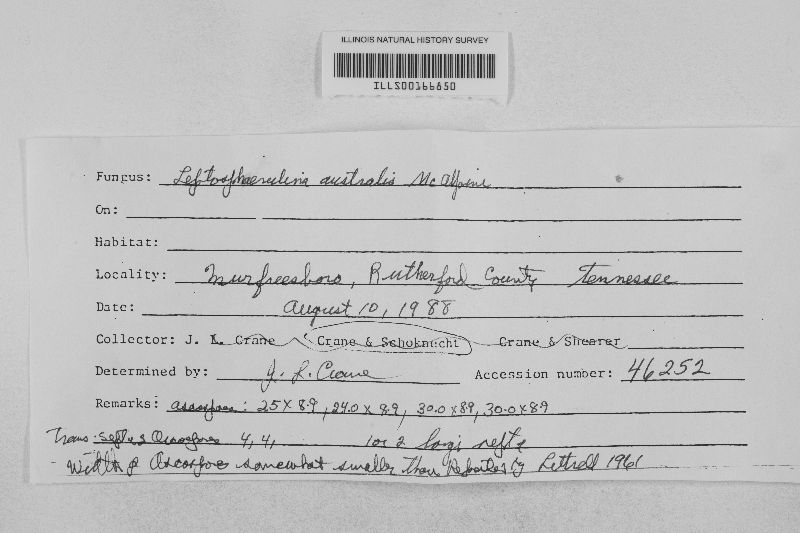 ILLINOIS NATURAL HISTORY SURVEY
ILLS00166850
Fungus: Leptosphaerulina australis McAlpine
On:
Habitat:
Locality: Murfreesboro, Rutherford County Tennessee
Date: August 10, 1988
Collector: J. L. Crane Crane & Schoknecht Crane & Shearer
Determined by: J. L. Crane Accession number: 46252
Remarks: ascospores: 25 x 8.9, 24.0 x 8.9, 30.0 x 8.9, 30.0 x 8.9
Trans. septa Ascospores 4, 4, 1 or 2 longi septa
Width of Ascospores somewhat smaller than reported by Luttrell 1961